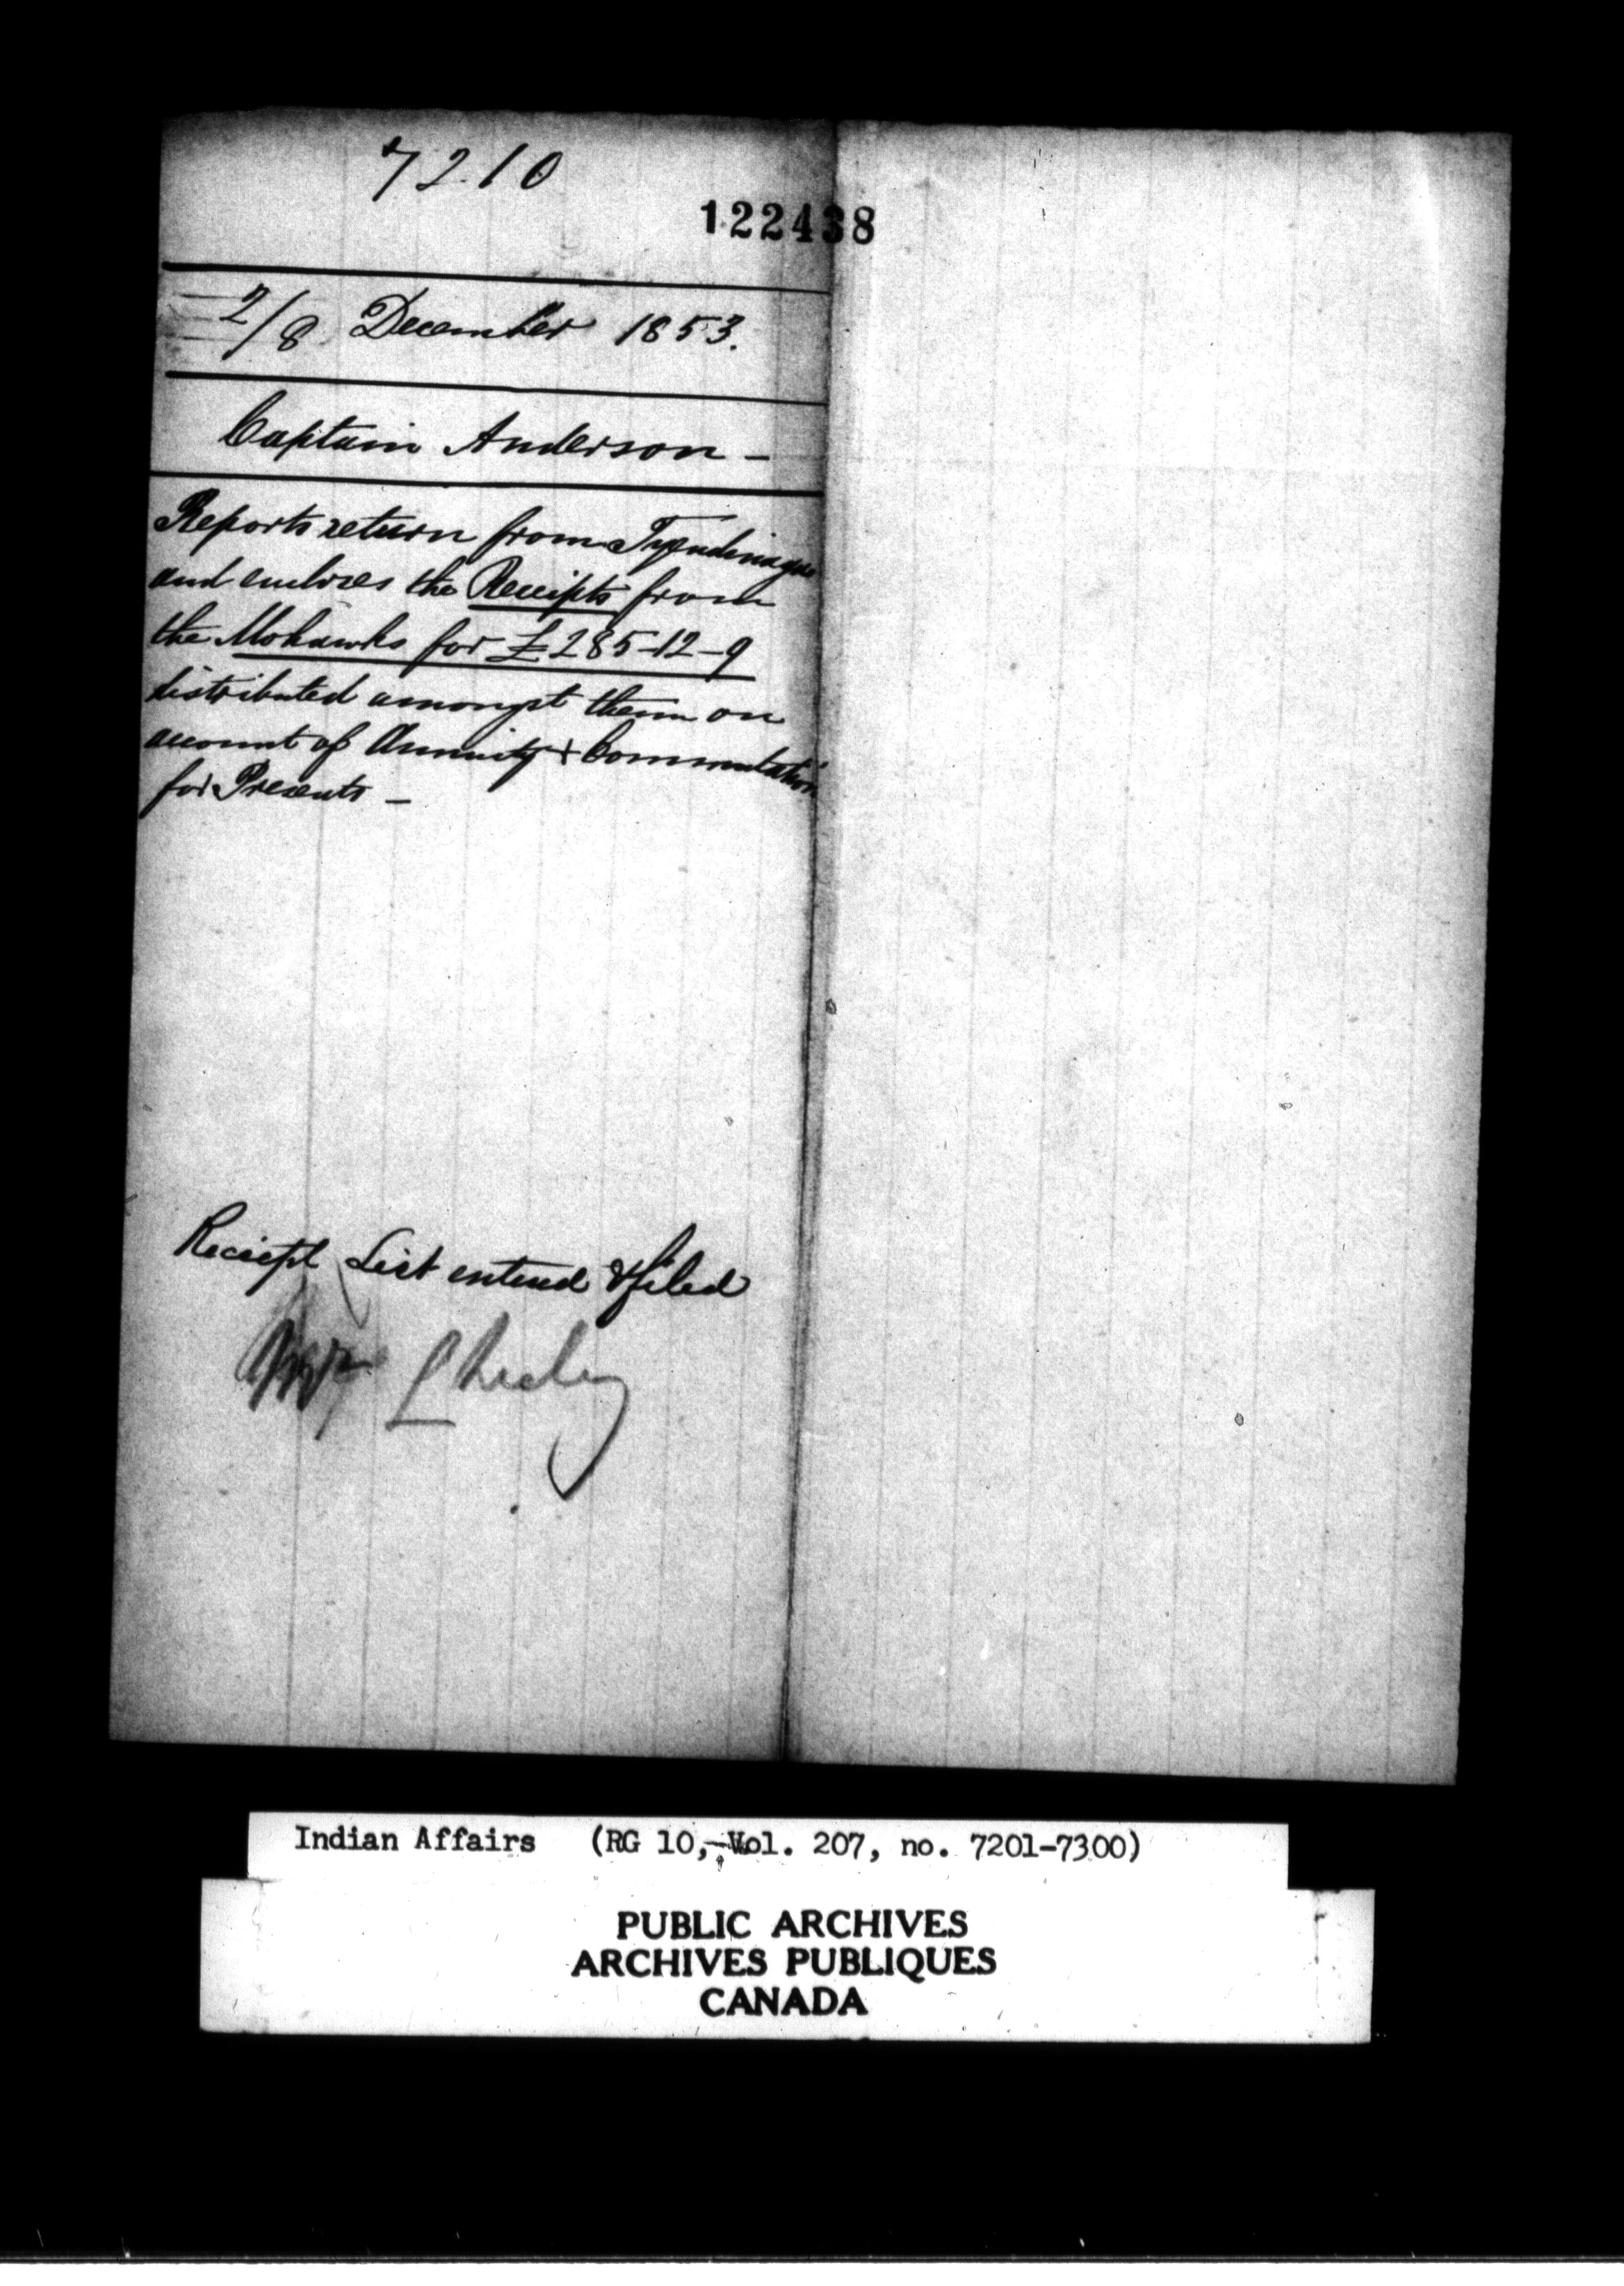 7210
122438
2/8 December 1853.
Captain Anderson —
Reports return from Tyendinaga
and encloses the Receipts from
the Mohawks for £285-12-9
distributed amongst them on
account of Annuity & Commutation
for Presents —
Receipt List entered & filed
Indian Affairs (RG 10, Vol. 207, no. 7201-7300)
PUBLIC ARCHIVES
ARCHIVES PUBLIQUES
CANADA